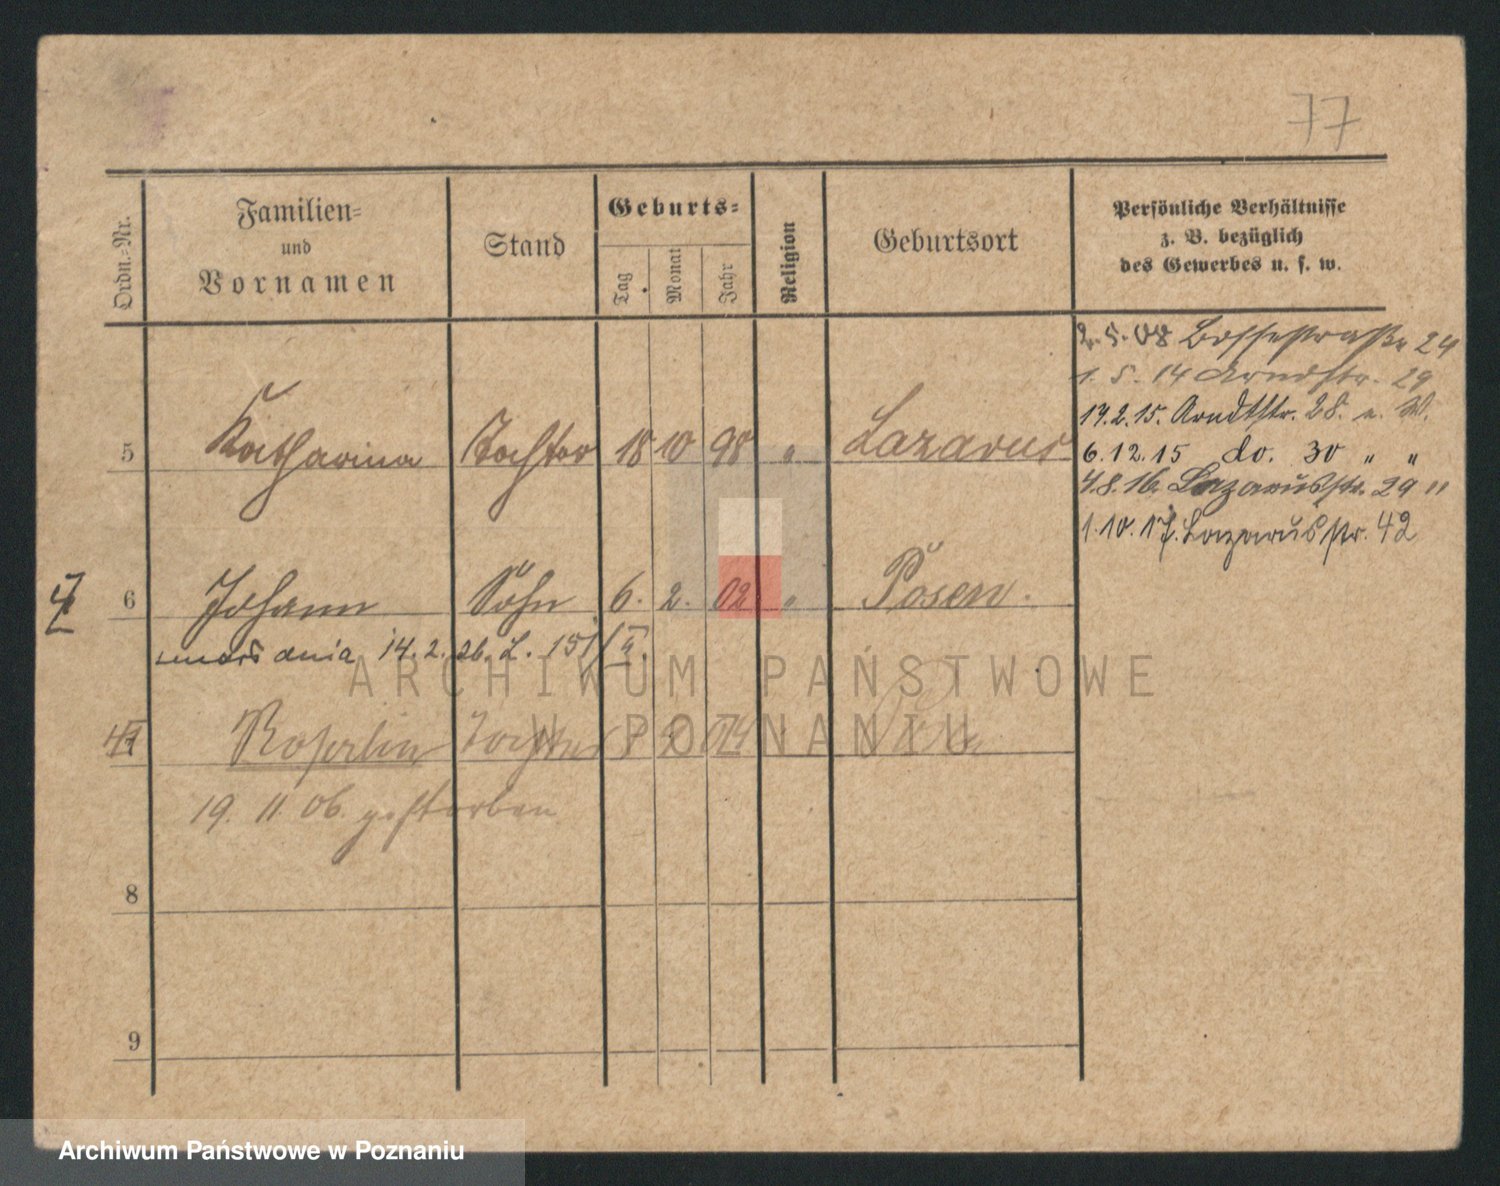 77
Ordn.-Nr.
Familien-
und
Vornamen
Stand
Geburts-
Tag
Monat
Jahr
Religion
Geburtsort
Persönliche Verhältnisse
z. B. bezüglich
des Gewerbes u. s. w.
2.5.08 Bossestraße 24
1. 5. 14 Arndtstr. 29
17.2.15. Arndtstr. 28. u. W.
5 Katharina Tochter 18 10 98 " Lazarus
6.12.15 do. 30 " "
4.8.16. Lazarusstr. 29 "
1.10.17. Lazarusstr. 42
6 Johann Sohn 6. 2. 02 " Posen.
zmarł dnia 14.2.26. L. 151/II.
7 Tochter
19. 11. 06. gestorben
8
9
ARCHIWUM PAŃSTWOWE
W POZNANIU
Archiwum Państwowe w Poznaniu